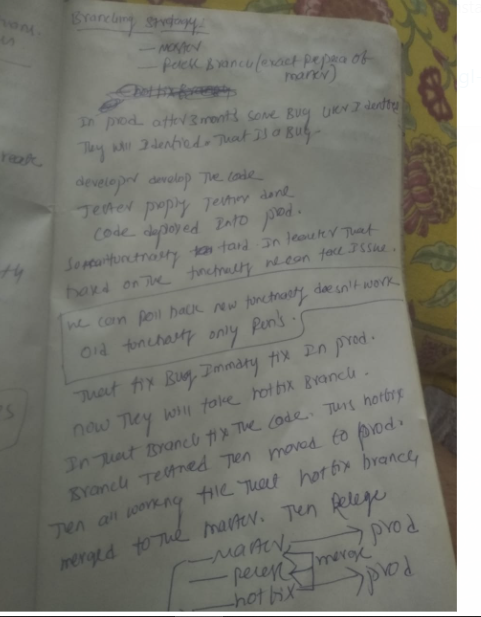 Branching strategy
— Master
— Relese Branch (exact Replica of
master)
In prod after 3 months some Bug User Identified
They will Identified. That Is a Bug.
developer develop The code
Tester properly Tester done
code deployed Into prod.
Some functionality In That
based on The functionality we can face Issue.
we can Roll back new functionality doesn't work
old functionality only Run's.
That fix Bug Immdtly fix In prod.
now They will take hotfix Branch.
In That Branch fix The code. This hotfix
Branch Testned Then moved to prod.
Then all working fine That hotfix branch
merged to The master. Then Relege
— Master → prod
— Relese merge
— hotfix → prod